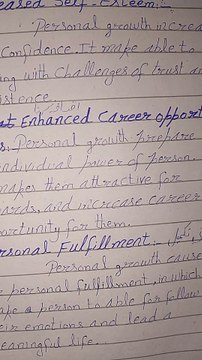 eased Self-Esteem:-
Personal growth increa
confidence. It make able to
ng with challenges of trust an
istence.
Enhanced Career opport
s. Personal growth prepare
ndividual power of person.
makes them attractive for
ards, and increase career
portunity for them.
rsonal Fulfillment:-
Personal growth cause
personal fulfillment, in which
ake a person to able for follow
eir emotions and lead a
eaningful life..